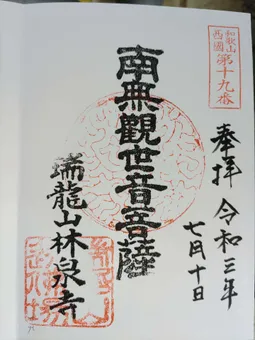 和歌山
西國
第十九番
奉拝 令和三年
七月十日
南無觀世音菩薩
瑞龍山林泉寺